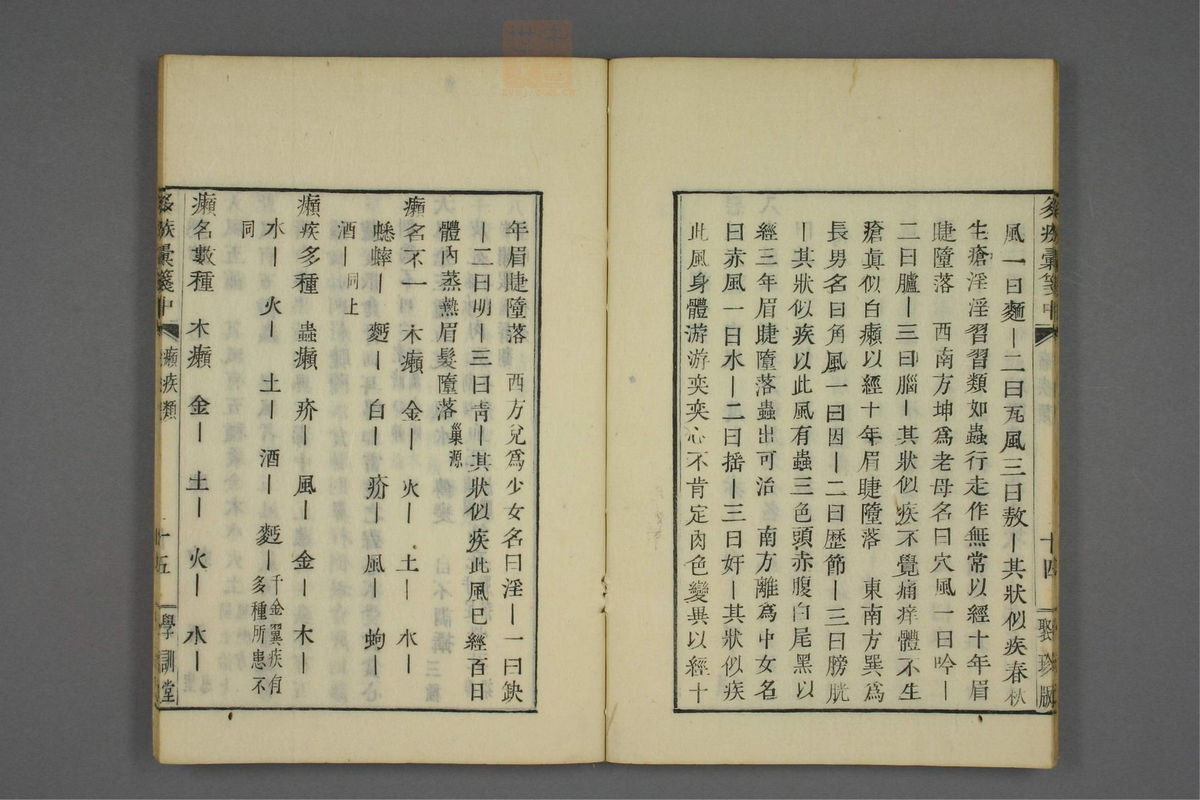 風一曰麵｜二曰㼝風三曰敖｜其狀似疾春秋
生瘡淫淫習習類如蟲行走作無常以經十年眉
睫墮落　西南方坤爲老母名曰穴風一曰吟｜
二曰臚｜三曰腦｜其狀似疾不覺痛痒體不生
瘡眞似白癩以經十年眉睫墮落　東南方巽爲
長男名曰角風一曰因｜二曰歷節｜三曰膀胱
｜其狀似疾以此風有蟲三色頭赤腹白尾黑以
經三年眉睫墮落蟲出可治　南方離爲中女名
曰赤風一曰水｜二曰摇｜三曰奸｜其狀似疾
此風身體游游奕奕心不肯定肉色變異以經十
疾彙箋中　癩疾類　十四　聚珍版
年眉睫墮落　西方兌爲少女名曰淫｜一曰缺
｜二曰明｜三曰靑｜其狀似疾此風已經百日
體內蒸熱眉髮墮落巢源
癩名不一　木癩　金｜　火｜　土｜　水｜
蟋蟀｜　麪｜　白｜　疥｜　風｜　蚼｜
酒｜同上
癩疾多種　蟲癩　疥｜　風｜　金｜　木｜
水｜　火｜　土｜　酒｜　麪｜千金翼疾有多種所患不
同
癩名數種　木癩　金｜　土｜　火｜　水｜
疾彙箋中　癩疾類　十五　學訓堂